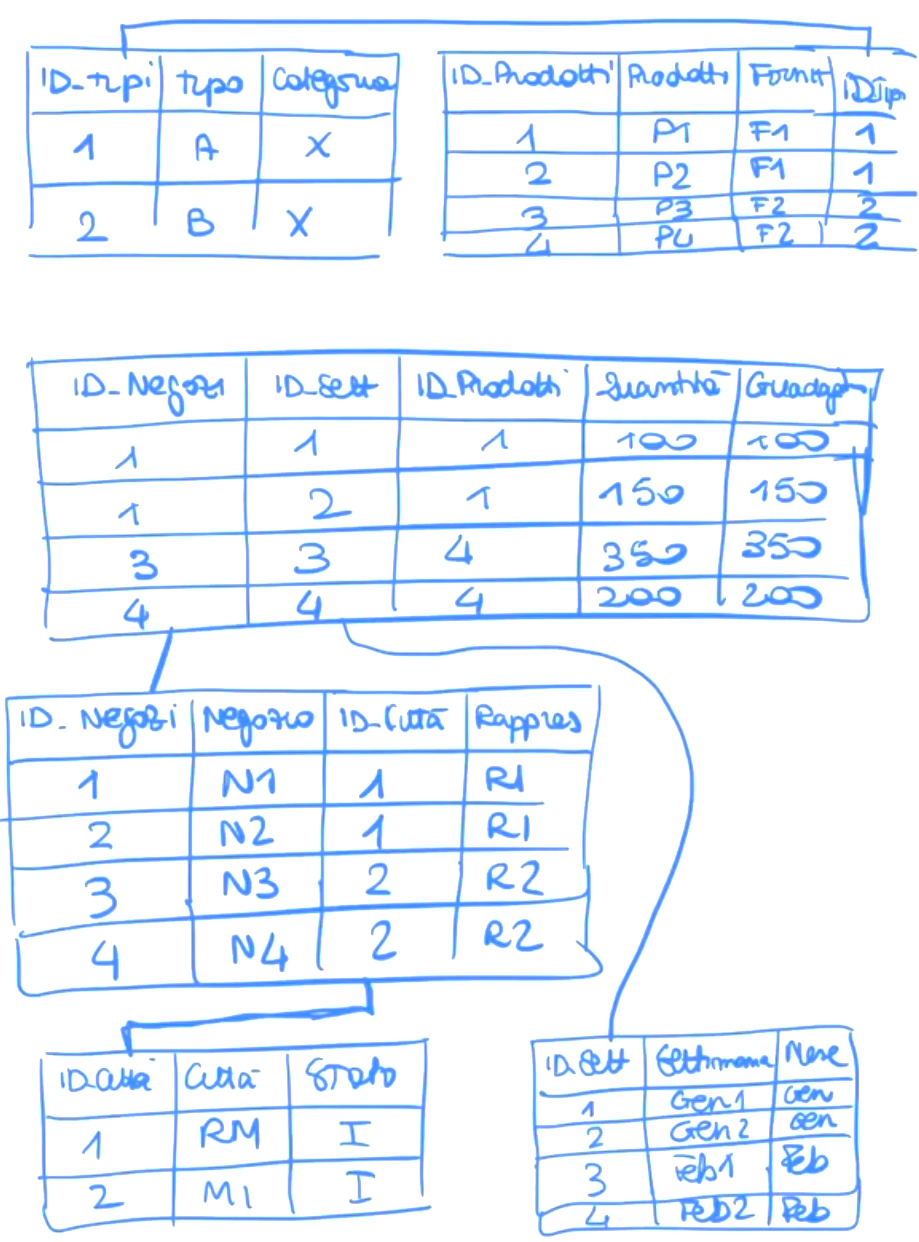 ID_tipi Tipo Categoria
1 A X
2 B X
ID_Prodotti Prodotti Fornit ID_Tipi
1 P1 F1 1
2 P2 F1 1
3 P3 F2 2
4 P4 F2 2
ID_Negozi ID_Sett ID_Prodotti Quantità Guadagn
1 1 1 100 100
1 2 1 150 150
3 3 4 350 350
4 4 4 200 200
ID_Negozi Negozio ID_Città Rappres
1 N1 1 R1
2 N2 1 R1
3 N3 2 R2
4 N4 2 R2
ID_Città Città Stato
1 RM I
2 MI I
ID_Sett Settimana Mese
1 Gen1 Gen
2 Gen2 Gen
3 Feb1 Feb
4 Feb2 Feb